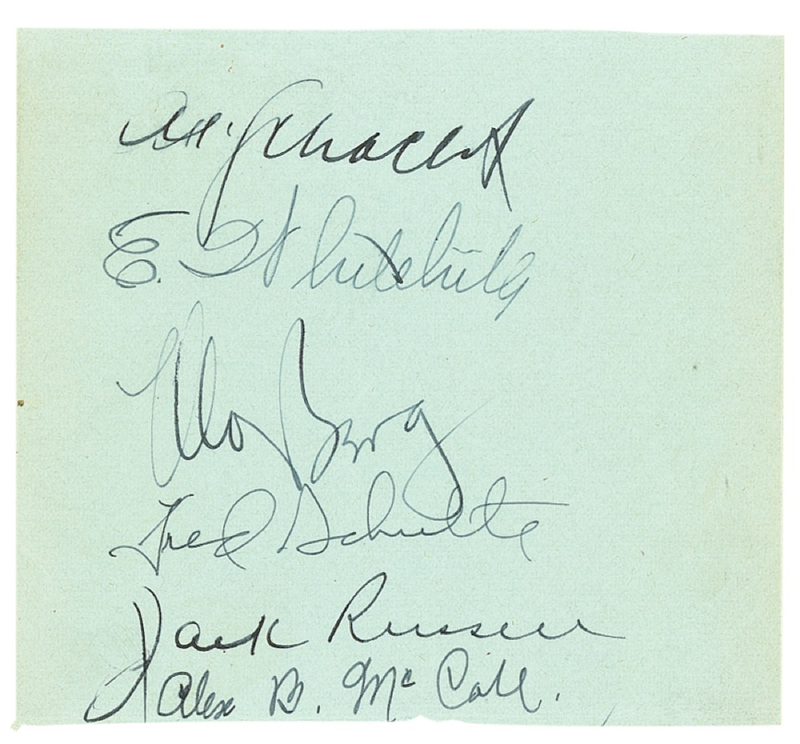 Al. Schacht
E. Whitehill
Moe Berg
Fred Schulte
Jack Russell
Alex B. McColl.